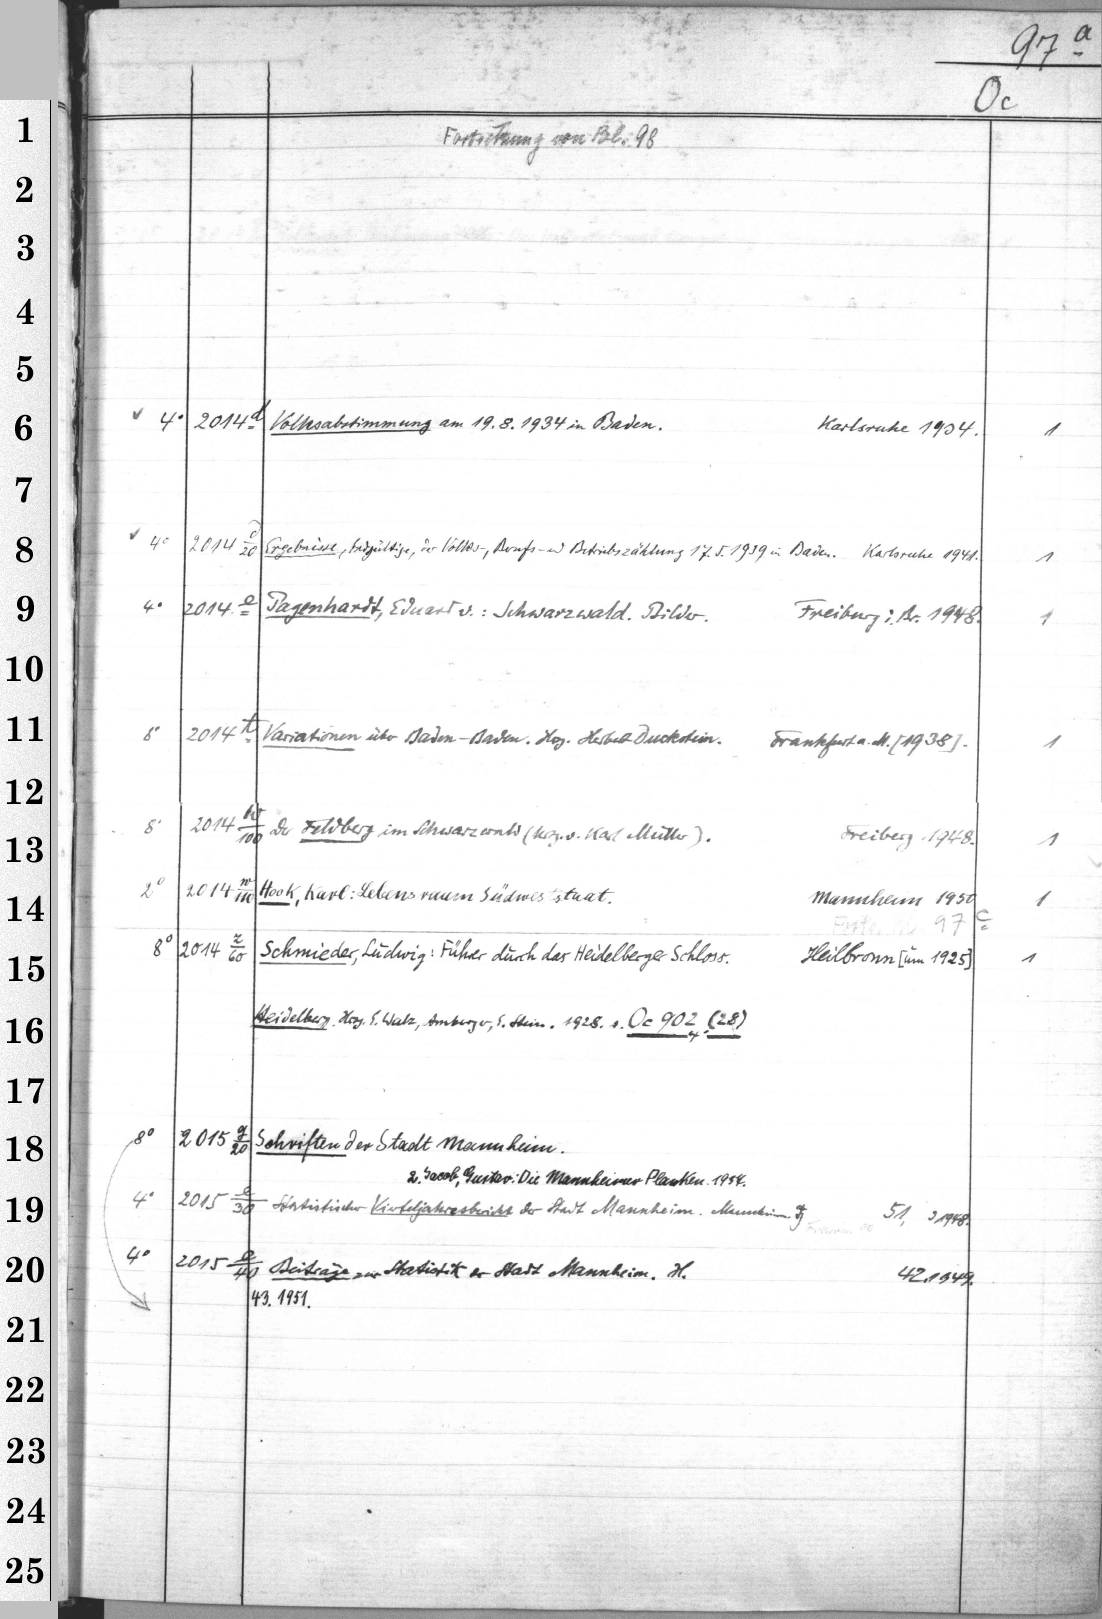 97 a
Oc
1
Fortsetzung von Bl. 98
2
3
4
5
6 4° 2014 d Volksabstimmung am 19.8.1934 in Baden. Karlsruhe 1934. 1
7
8 4° 2014 d/20 Ergebnisse, Endgültige, der Volks-, Berufs- u Betriebszählung 17.5.1939 in Baden. Karlsruhe 1941. 1
9 4° 2014 e Pagenhardt, Eduard v.: Schwarzwald. Bilder. Freiburg i. Br. 1948. 1
10
11 8° 2014 t Variationen über Baden-Baden. Hrg. Herbert Duckstein. Frankfurt a. M. [1938]. 1
12
8° 2014 w/100 Der Feldberg im Schwarzwald (hrg. v. Karl Müller). Freiberg 1948. 1
13
14 2° 2014 w/110 Hook, Karl: Lebensraum Südweststaat. Mannheim 1950 1
97 c
15 8° 2014 z/60 Schmieder, Ludwig: Führer durch das Heidelberger Schloss. Heilbronn [um 1925] 1
16 Heidelberg. Hrg. E. Walz, Amberger, E. Stein. 1928. s. Oc 902 4, (28)
17
18 8° 2015 g/20 Schriften der Stadt Mannheim.
2. Jacob, Gustav: Die Mannheimer Planken. 1954.
19 4° 2015 a/30 Statistischer Vierteljahresbericht der Stadt Mannheim. Mannheim. Jg 51, 3 1948.
20 4° 2015 a/40 Beiträge zur Statistik der Stadt Mannheim. H. 42. 1949.
43. 1951.
21
22
23
24
25